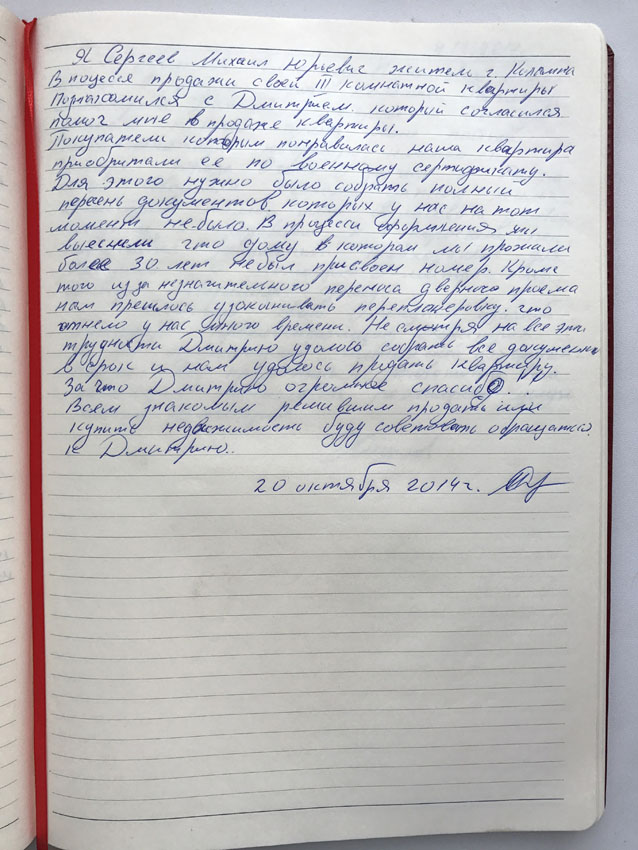 Я Сергеев Михаил Юрьевич житель г. Коломна
В поцессе продажи своей III комнатной квартиры
Порознакомился с Дмитрием который согласился
помоч мне в продаже квартиры.
Покупатели которим понравилась наша квартира
приобритали ее по военному сертификату.
Для этого нужно было собрать полный
перечнь документов которых у нас на тот
момент небыло. В процесси оформления мы
выеснели что дому в котором мы прожили
более 30 лет небыл присвоен номер. Кроме
того из за незначительного переноса дверного проема
нам прешлось узаканивать перепланеровку. что
отнело у нас много времени. Не смотря на все эти
трудности Дмитрию удалось собрать все документы
в срок и нам удалось придать квартиру.
За что Дмитрию огромное спасибо...
Всем знакомым решившим продать или
купить недвижимость буду советовать обращаться
к Дмитрию..
20 октября 2014г.